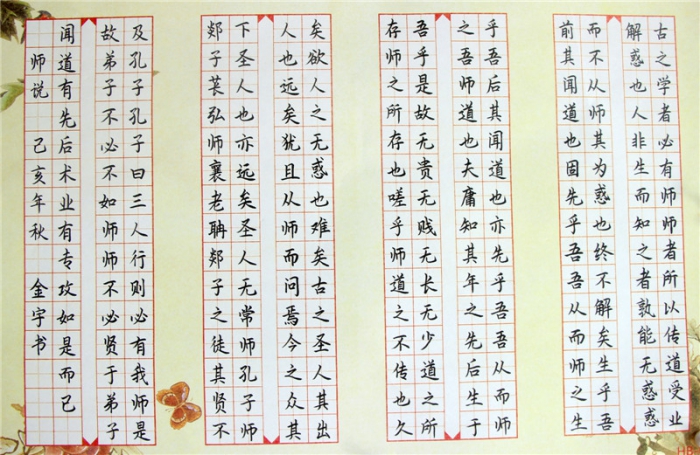 古之学者必有师师者所以传道受业
解惑也人非生而知之者孰能无惑惑
而不从师其为惑也终不解矣生乎吾
前其闻道也固先乎吾吾从而师之生
乎吾后其闻道也亦先乎吾吾从而师
之吾师道也夫庸知其年之先后生于
吾乎是故无贵无贱无长无少道之所
存师之所存也嗟乎师道之不传也久
矣欲人之无惑也难矣古之圣人其出
人也远矣犹且从师而问焉今之众其
下圣人也亦远矣圣人无常师孔子师
郯子苌弘师襄老聃郯子之徒其贤不
及孔子孔子曰三人行则必有我师是
故弟子不必不如师师不必贤于弟子
闻道有先后术业有专攻如是而已
师说 己亥年秋 金字书